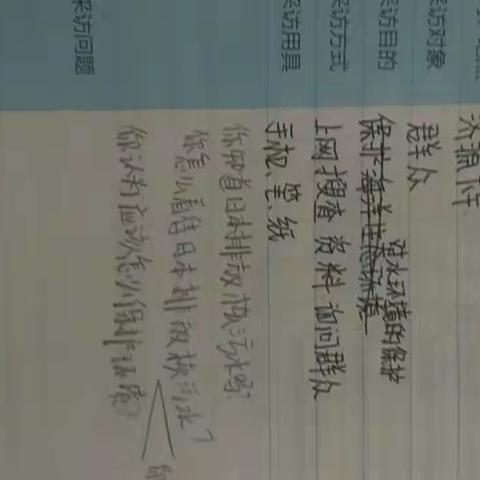 采访对象 群众
采访目的 保护海洋生态环境
对水环境的保护
采访方式 上网搜查资料 询问群众
采访用具 手机、笔、纸
你知道日本排放核污水吗?
你怎么看待日本排放核污水?
采访问题 你认为应该怎么保护
你